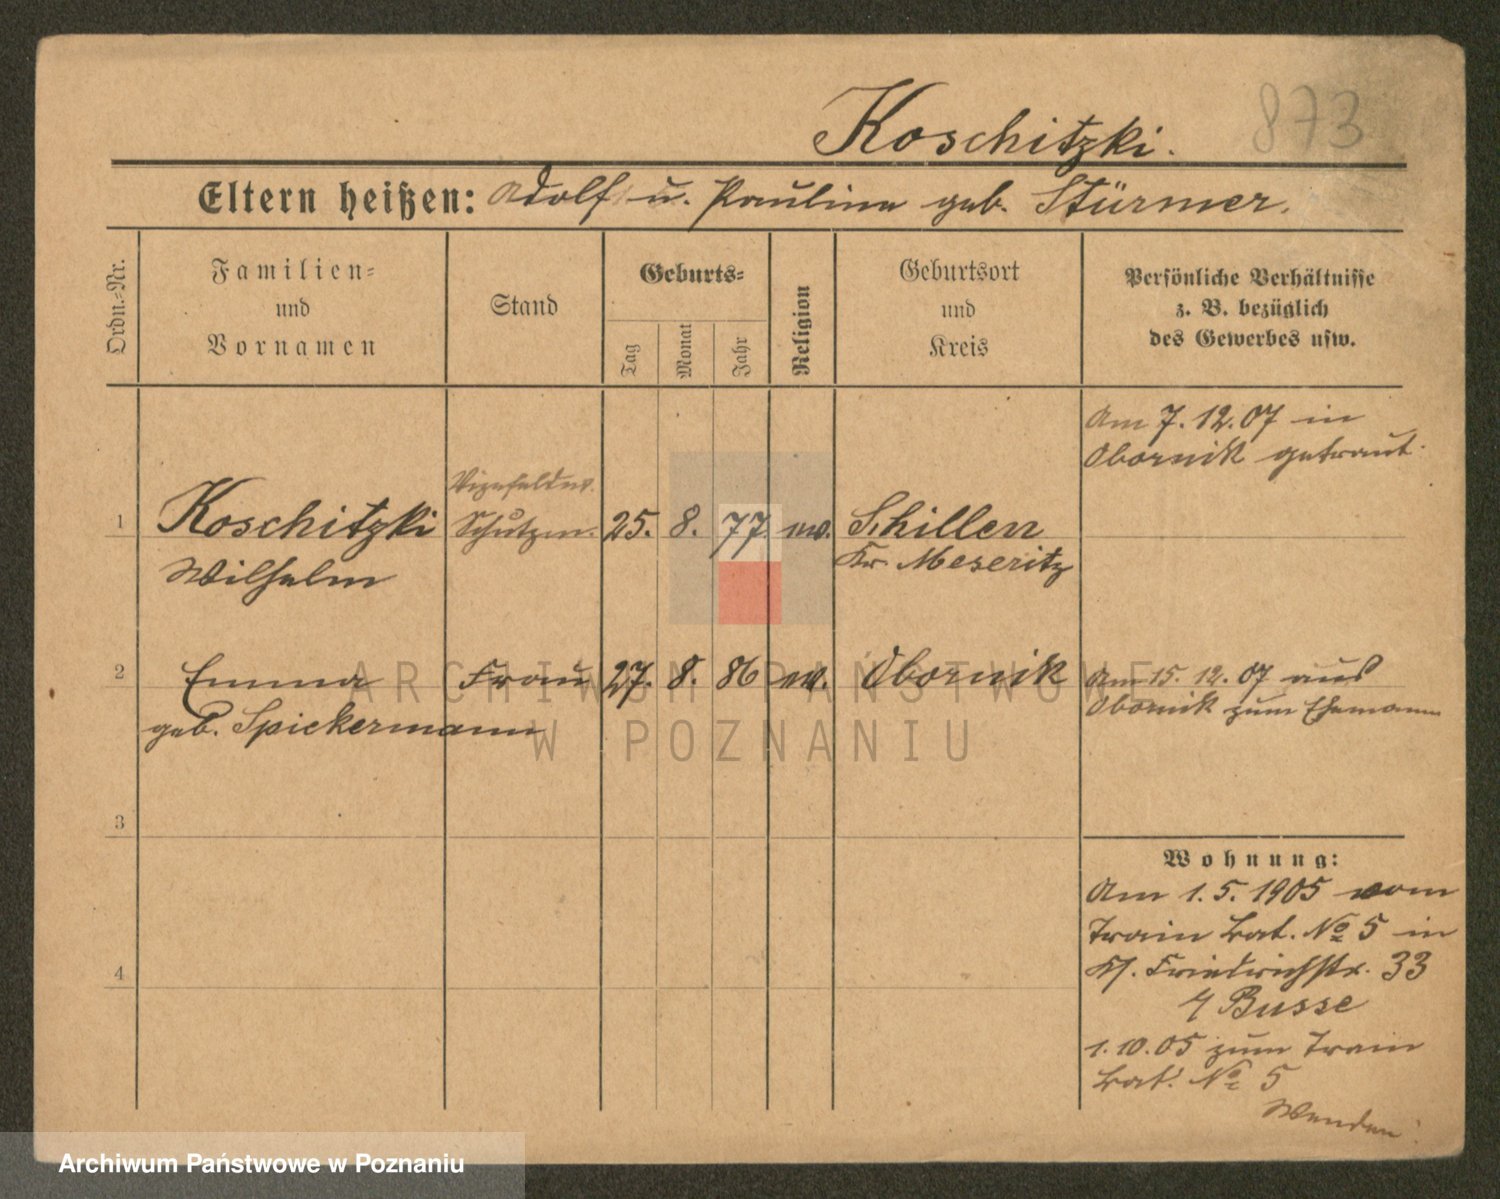 873
Koschitzki.
Eltern heißen: Adolf u. Pauline geb. Stürmer.
Ordn.-Nr.
Familien-
und
Vornamen
Stand
Geburts-
Tag
Monat
Jahr
Religion
Geburtsort
und
Kreis
Persönliche Verhältnisse
z. B. bezüglich
des Gewerbes usw.
Am 7. 12. 07 in
Obornik getraut.
Vizefeldw.
1 Koschitzki Schutzm. 25. 8. 77. ev. Schillen
Wilhelm Kr. Meseritz
2 Emma Frau 27. 8. 86 ev. Obornik Am 15. 12. 07 aus
geb. Spickermann Obornik zum Ehemann
ARCHIWUM PAŃSTWOWE
W POZNANIU
3
Wohnung:
Am 1. 5. 1905 vom
Train Bat. No 5 in
Kl. Friedrichstr. 33
4
b/ Busse
1. 10. 05 zum Train
Bat. No 5
Wenden!
Archiwum Państwowe w Poznaniu